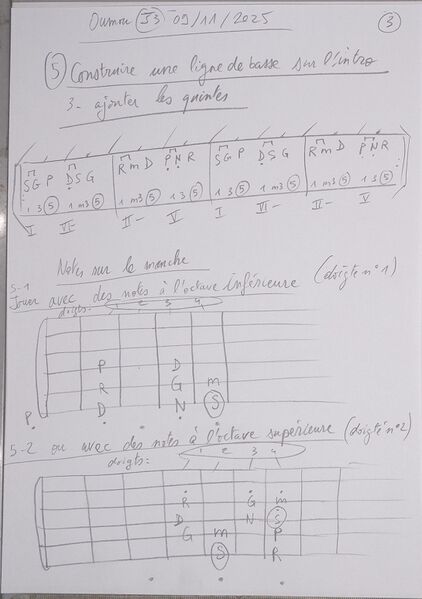 Oumou (J3) 09/11/2025 (3)
(5) Construire une ligne de basse sur l'intro
3- ajouter les quintes
S G P D S G R m D P N R S G P D S G R m D P N R
1 3 (5) 1 m3 (5) 1 m3 (5) 1 3 (5) 1 3 (5) 1 m3 (5) 1 m3 (5) 1 3 (5)
I VI- II- V I VI- II- V
Notes sur le manche
5-1
Jouer avec des notes à l'octave inférieure (doigté n°1)
doigts: 1 2 3 4
P D
R G m
P D N (S)
5-2 ou avec des notes à l'octave supérieure (doigté n°2)
doigts: 1 2 3 4
R G m
D N (S)
G m P
(S) R